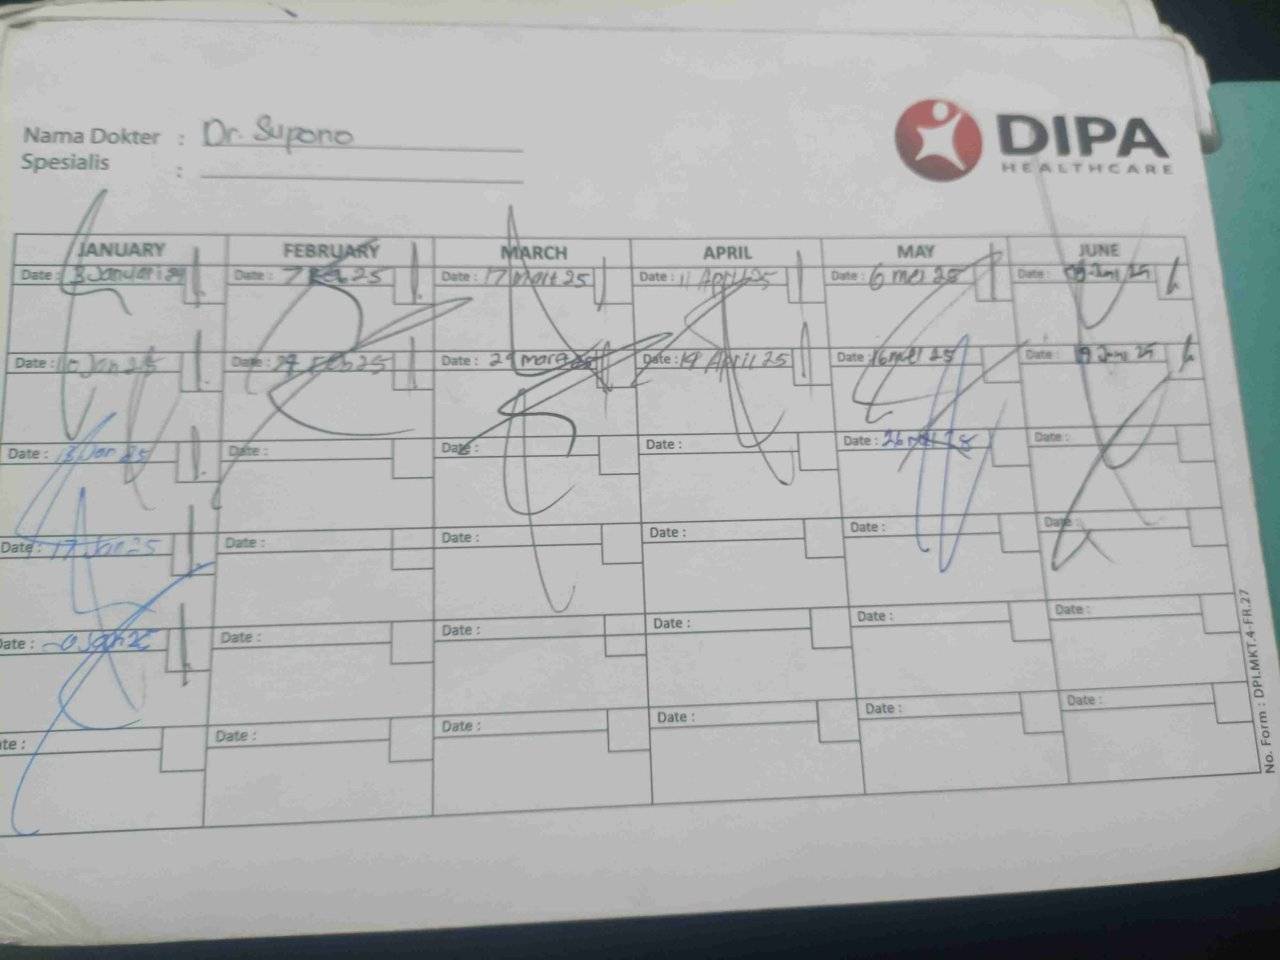 Nama Dokter : Dr. Supono
Spesialis :
DIPA
HEALTHCARE
JANUARY FEBRUARY MARCH APRIL MAY JUNE
Date : 3 Januari Date : 7 Feb 25 Date : 17 Mart 25 Date : 11 April 25 Date : 6 mei 25 Date : Juni 25
Date : 10 Jan 25 Date : Feb 25 Date : 29 mar Date : 19 April 25 Date : 16 mei 25 Date : 9 Juni 25
Date : 13 Jan 25 Date : Date : Date : Date : 26 mei 25 Date :
Date : 17 Jan 25 Date : Date : Date : Date : Date :
Date : Jan 25 Date : Date : Date : Date : Date :
te : Date : Date : Date : Date : Date :
No. Form : DPI.MKT.4-FR.27